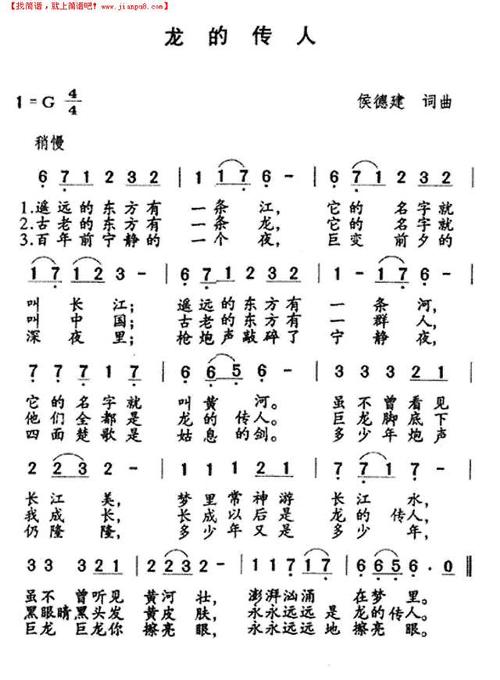 【找简谱，就上简谱吧！www.jianpu8.com】
龙的传人
1=G 4/4
侯德建 词曲
稍慢
6 7 1 2 3 2 | 1 1 7 6 - | 6 7 1 2 3 2
1.遥远的东方有 一条江， 它的 名字就
2.古老的东方有 一条龙， 它的 名字就
3.百年前宁静的 一个夜， 巨变 前夕的
1 7 1 2 3 - | 6 7 1 2 3 2 | 1 1 7 6 - |
叫 长江； 遥远的东方有 一 条河，
叫 中国； 古老的东方有 一 群人，
深 夜里； 枪炮声敲碎了 宁 静夜，
7 7 7 1 7 | 6 6 5 6 - | 3 3 3 3 2 1
它的名字就 叫黄 河。 虽不曾看见
他们全都是 龙的 传人。 巨龙脚底下
四面楚歌是 姑息 的剑。 多少年炮声
2 2 3 2 - | 1 1 1 2 1 | 7 7 1 7 - |
长江 美， 梦里常神游 长江 水，
我成 长， 长成以后又是 龙的 传人，
仍隆 隆， 多少年又是 多少 年，
3 3 3 2 1 | 2 2 3 2 2 - | 1 1 7 1 7 | 6 6 5 6 . 0 ‖
虽不 曾听见 黄河 壮， 澎湃汹涌 在梦 里。
黑眼睛黑头发 黄皮 肤， 永永远远 是 龙的传人。
巨龙 巨龙你 擦亮 眼， 永永远远地 擦亮 眼。